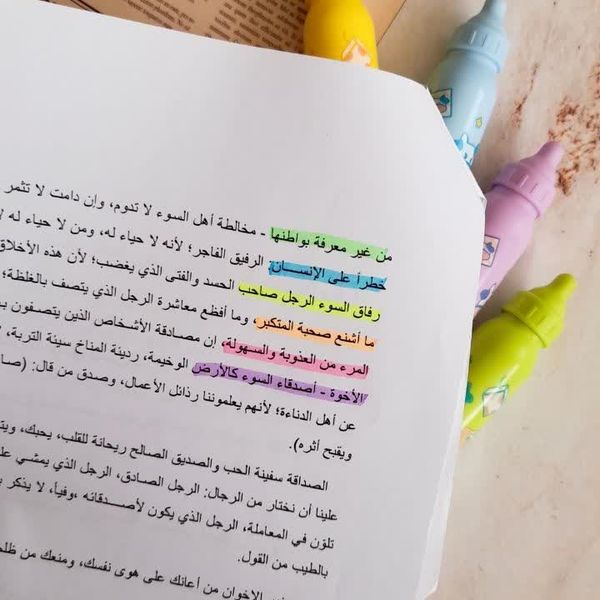 من غير معرفة بواطنها - مخالطة أهل السوء لا تدوم، وإن دامت لا تثمر
خطراً على الإنسان: الرفيق الفاجر؛ لأنه لا حياء له، ومن لا حياء له لا
رفاق السوء الرجل صاحب الحسد والفتى الذي يغضب؛ لأن هذه الأخلاق
ما أشنع صحبة المتكبر، وما أفظع معاشرة الرجل الذي يتصف بالغلظة؛
المرء من العذوبة والسهولة، إن مصادقة الأشخاص الذين يتصفون
الأخوة - أصدقاء السوء كالأرض الوخيمة، رديئة المناخ سيئة التربة، لا
عن أهل الدناءة؛ لأنهم يعلموننا رذائل الأعمال، وصدق من قال: (صا
ويقبح أثره).
الصداقة سفينة الحب والصديق الصالح ريحانة للقلب، يحبك،
علينا أن نختار من الرجال: الرجل الصادق، الرجل الذي يمشي
تلوّن في المعاملة، الرجل الذي يكون لأصدقائه وفياً، لا يذكر
بالطيب من القول.
الإخوان من أعانك على هوى نفسك، ومنعك من